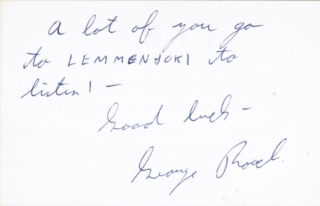 A lot of you go
to LEMMENJOKI to
listen! –
Good luck –
George